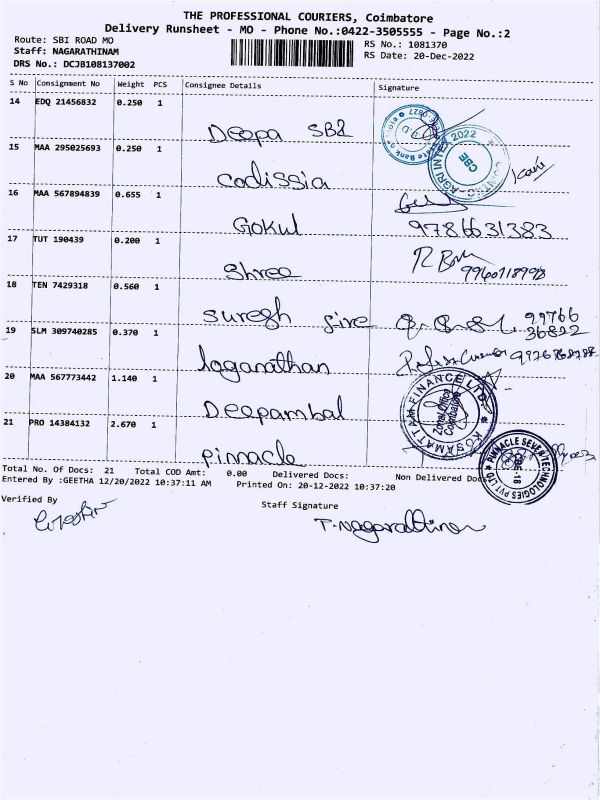 THE PROFESSIONAL COURIERS, Coimbatore
Delivery Runsheet - MO - Phone No.:0422-3505555 - Page No.:2
Route: SBI ROAD MO
RS No.: 1081370
Staff: NAGARATHINAM
RS Date: 20-Dec-2022
DRS No.: DCJB108137002
S No Consignment No Weight PCS Consignee Details Signature
14 EDQ 21456832 0.250 1
Deepa SBI
15 MAA 295025693 0.250 1
codissia
2022
CBE
16 MAA 567894839 0.655 1
Gokul 9786631383
17 TUT 190439 0.200 1
Shree 9940118998
18 TEN 7429318 0.560 1
Suresh fire 99766
36822
19 SLM 309740285 0.370 1
loganathan 9976768788
20 MAA 567773442 1.140 1
Deepambal
KOSAMATTAM FINANCE LTD.
Zonal Office
Coimbatore
21 PRO 14384132 2.670 1
pinnacle
PINNACLE SEVEN TECHNOLOGIES PVT LTD
Total No. Of Docs: 21 Total COD Amt: 0.00 Delivered Docs: Non Delivered Docs
Entered By :GEETHA 12/20/2022 10:37:11 AM Printed On: 20-12-2022 10:37:20
Verified By Staff Signature
T. Nagarathinam